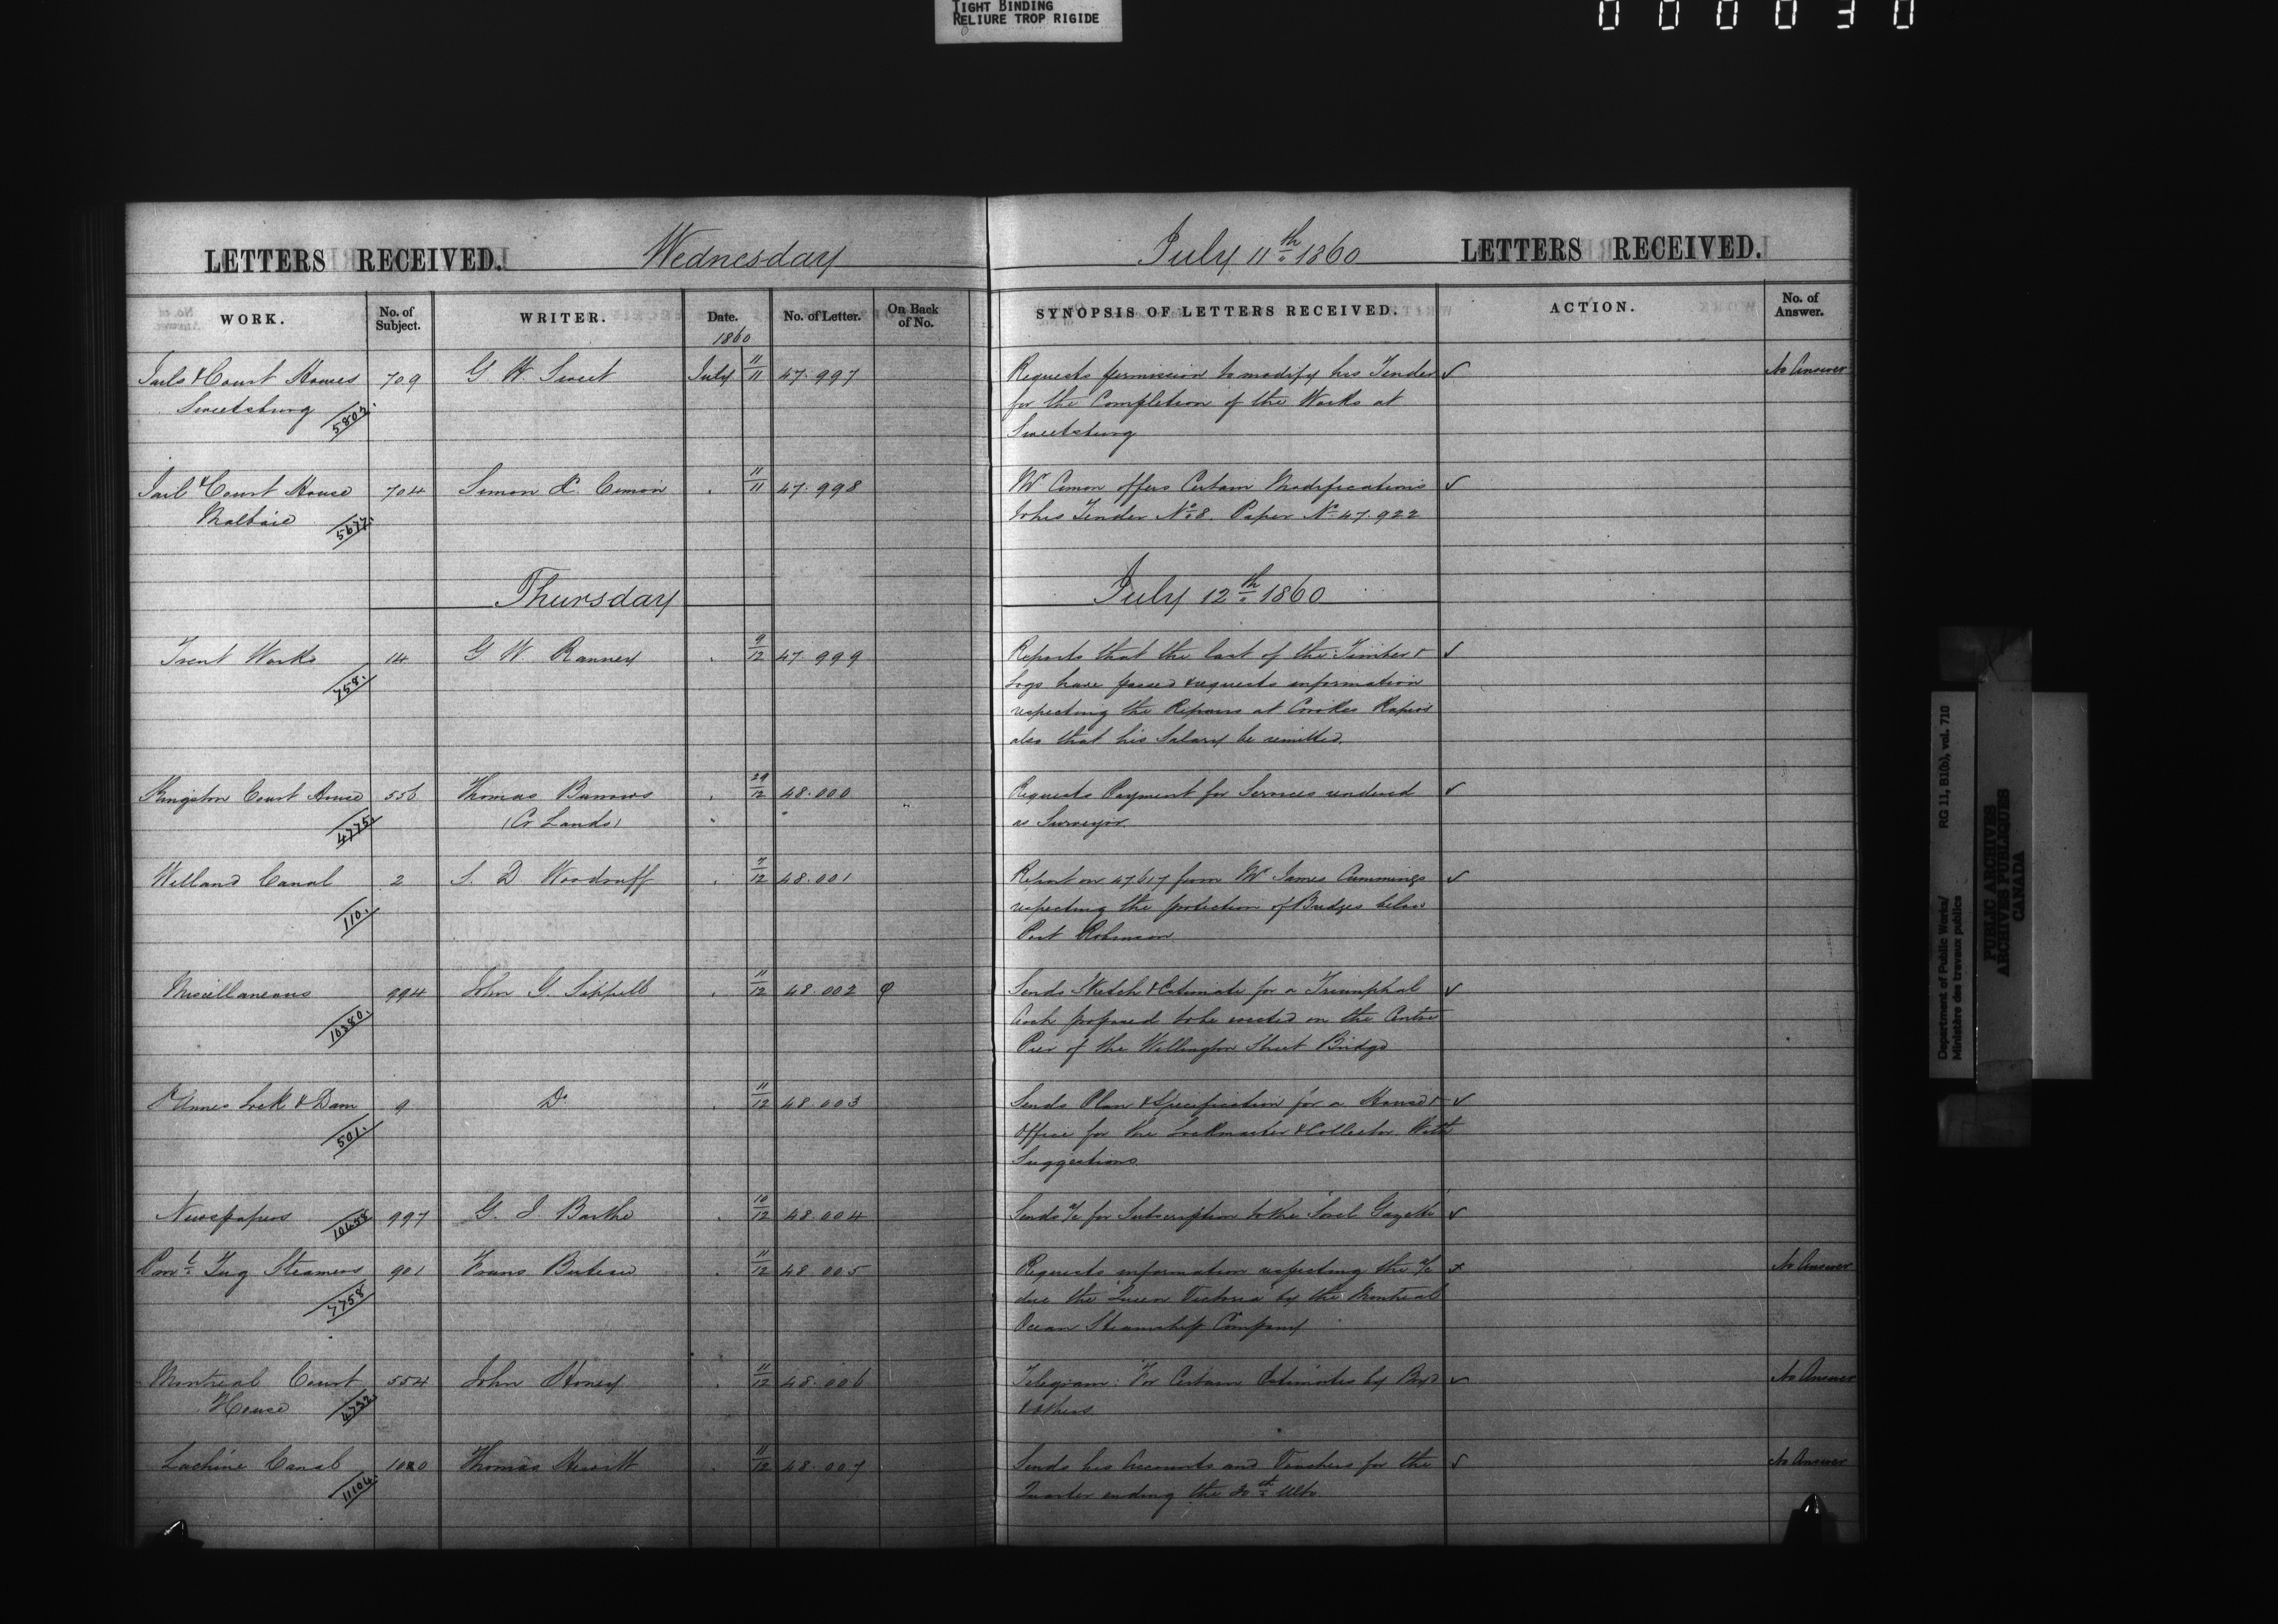 TIGHT BINDING
RELIURE TROP RIGIDE
000030
LETTERS RECEIVED. Wednesday July 11th 1860 LETTERS RECEIVED.
WORK. No. of Subject. WRITER. Date. No. of Letter. On Back of No. SYNOPSIS OF LETTERS RECEIVED. ACTION. No. of Answer.
1860
Jails & Court Houses 709 G W. Sweet July 11/11 47.997 Requests permission to modify his Tender ✓ No Answer
Sweetsburg 5807. for the Completion of the Works at
Sweetsburg
Jail & Court House 704 Simon X. Cimon 11/11 47.998 Mr Cimon offers Certain Modifications ✓
Malbaie 5677. to his Tender No 8. Paper No 47.922
Thursday July 12th 1860
Trent Works 14 G W. Ranney 9/12 47.999 Reports that the last of the Timber & ✓
758. Logs have passed & requests information
respecting the Repairs at Crooks Rapids
also that his Salary be remitted.
Kingston Court House 556 Thomas Burrows 29/12 48.000 Requests Payment for Services rendered ✓
4775. (Cr Lands) as Surveyor.
Welland Canal 2 S. D Woodruff 7/12 48.001 Report on 47617 from Mr James Cummings ✓
110. respecting the protection of Bridges below
Port Robinson
Miscellaneous 994 John G. Sippell 11/12 48.002 φ Sends Sketch & Estimate for a Triumphal ✓
10380. Arch proposed to be erected on the Centre
Pier of the Wellington Street Bridge
St Annes Lock & Dam 9 Do 11/12 48.003 Sends Plan & Specification for a House & ✓
501. Office for the Lockmaster & Collector With
Suggestions
Newspapers 10488 997 G. I. Barthe 10/12 48.004 Sends a/c for Subscription to the Sorel Gazette ✓
Provl Tug Steamers 901 11/12 48.005 Requests information respecting the a/c x No Answer
7758 due the Queen Victoria by the Montreal
Ocean Steamship Company
Montreal Court 554 John Honey 11/12 48.006 Telegram. For Certain Estimates by ✓ No Answer
House 4752 & others.
Lachine Canal 1020 Thomas Hewitt 11/12 48.007 Sends his Accounts and Vouchers for the ✓ No Answer
11104. Quarter ending the 30th Ulto
Department of Public Works/ RG 11, B1(b), vol. 710
Ministère des travaux publics
PUBLIC ARCHIVES
ARCHIVES PUBLIQUES
CANADA